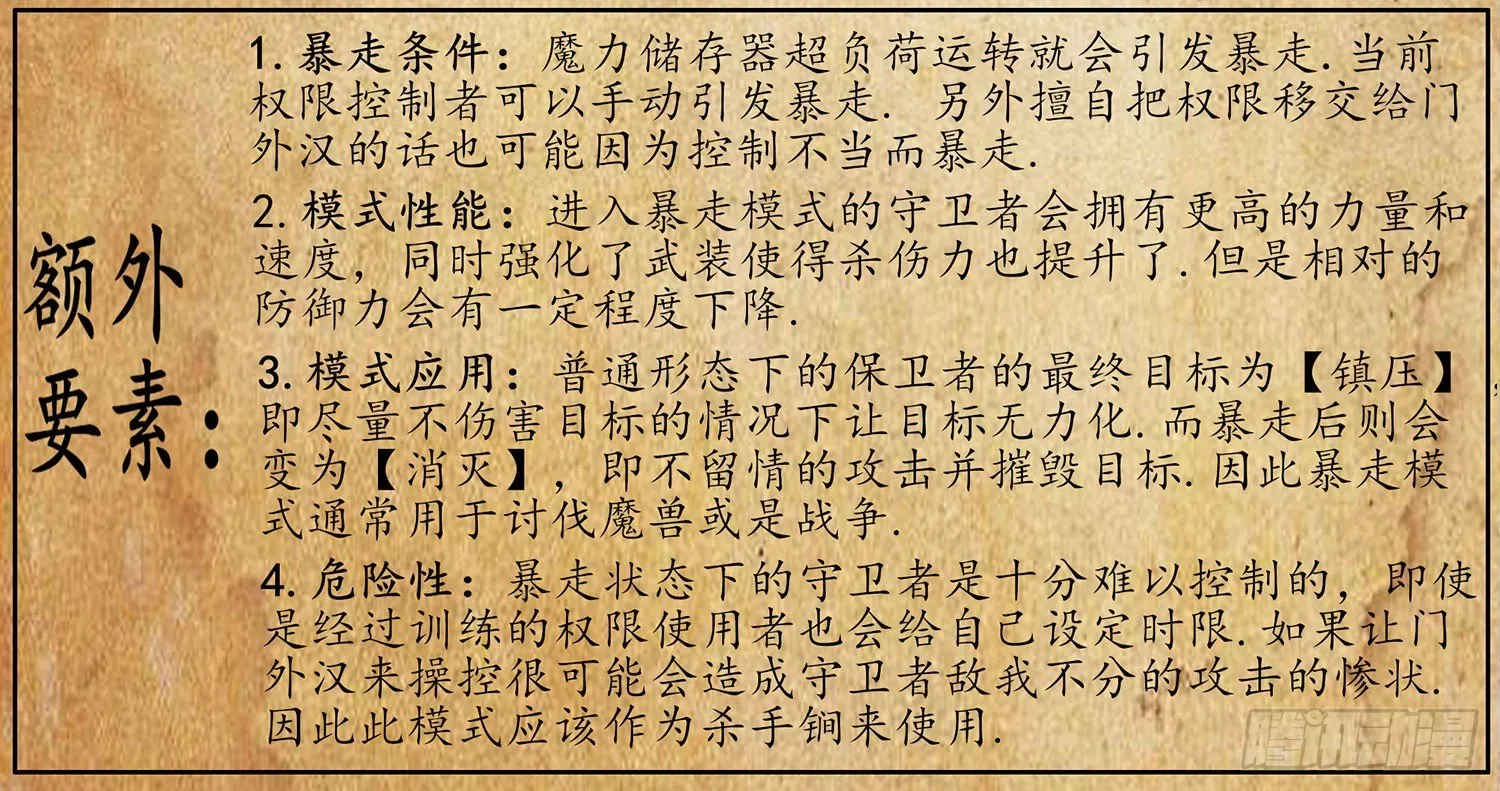 额外
要素：
1. 暴走条件：魔力储存器超负荷运转就会引发暴走. 当前
权限控制者可以手动引发暴走. 另外擅自把权限移交给门
外汉的话也可能因为控制不当而暴走.
2. 模式性能：进入暴走模式的守卫者会拥有更高的力量和
速度，同时强化了武装使得杀伤力也提升了. 但是相对的
防御力会有一定程度下降.
3. 模式应用：普通形态下的保卫者的最终目标为【镇压】，
即尽量不伤害目标的情况下让目标无力化. 而暴走后则会
变为【消灭】，即不留情的攻击并摧毁目标. 因此暴走模
式通常用于讨伐魔兽或是战争.
4. 危险性：暴走状态下的守卫者是十分难以控制的，即使
是经过训练的权限使用者也会给自己设定时限. 如果让门
外汉来操控很可能会造成守卫者敌我不分的攻击的惨状.
因此此模式应该作为杀手锏来使用.
腾讯动漫